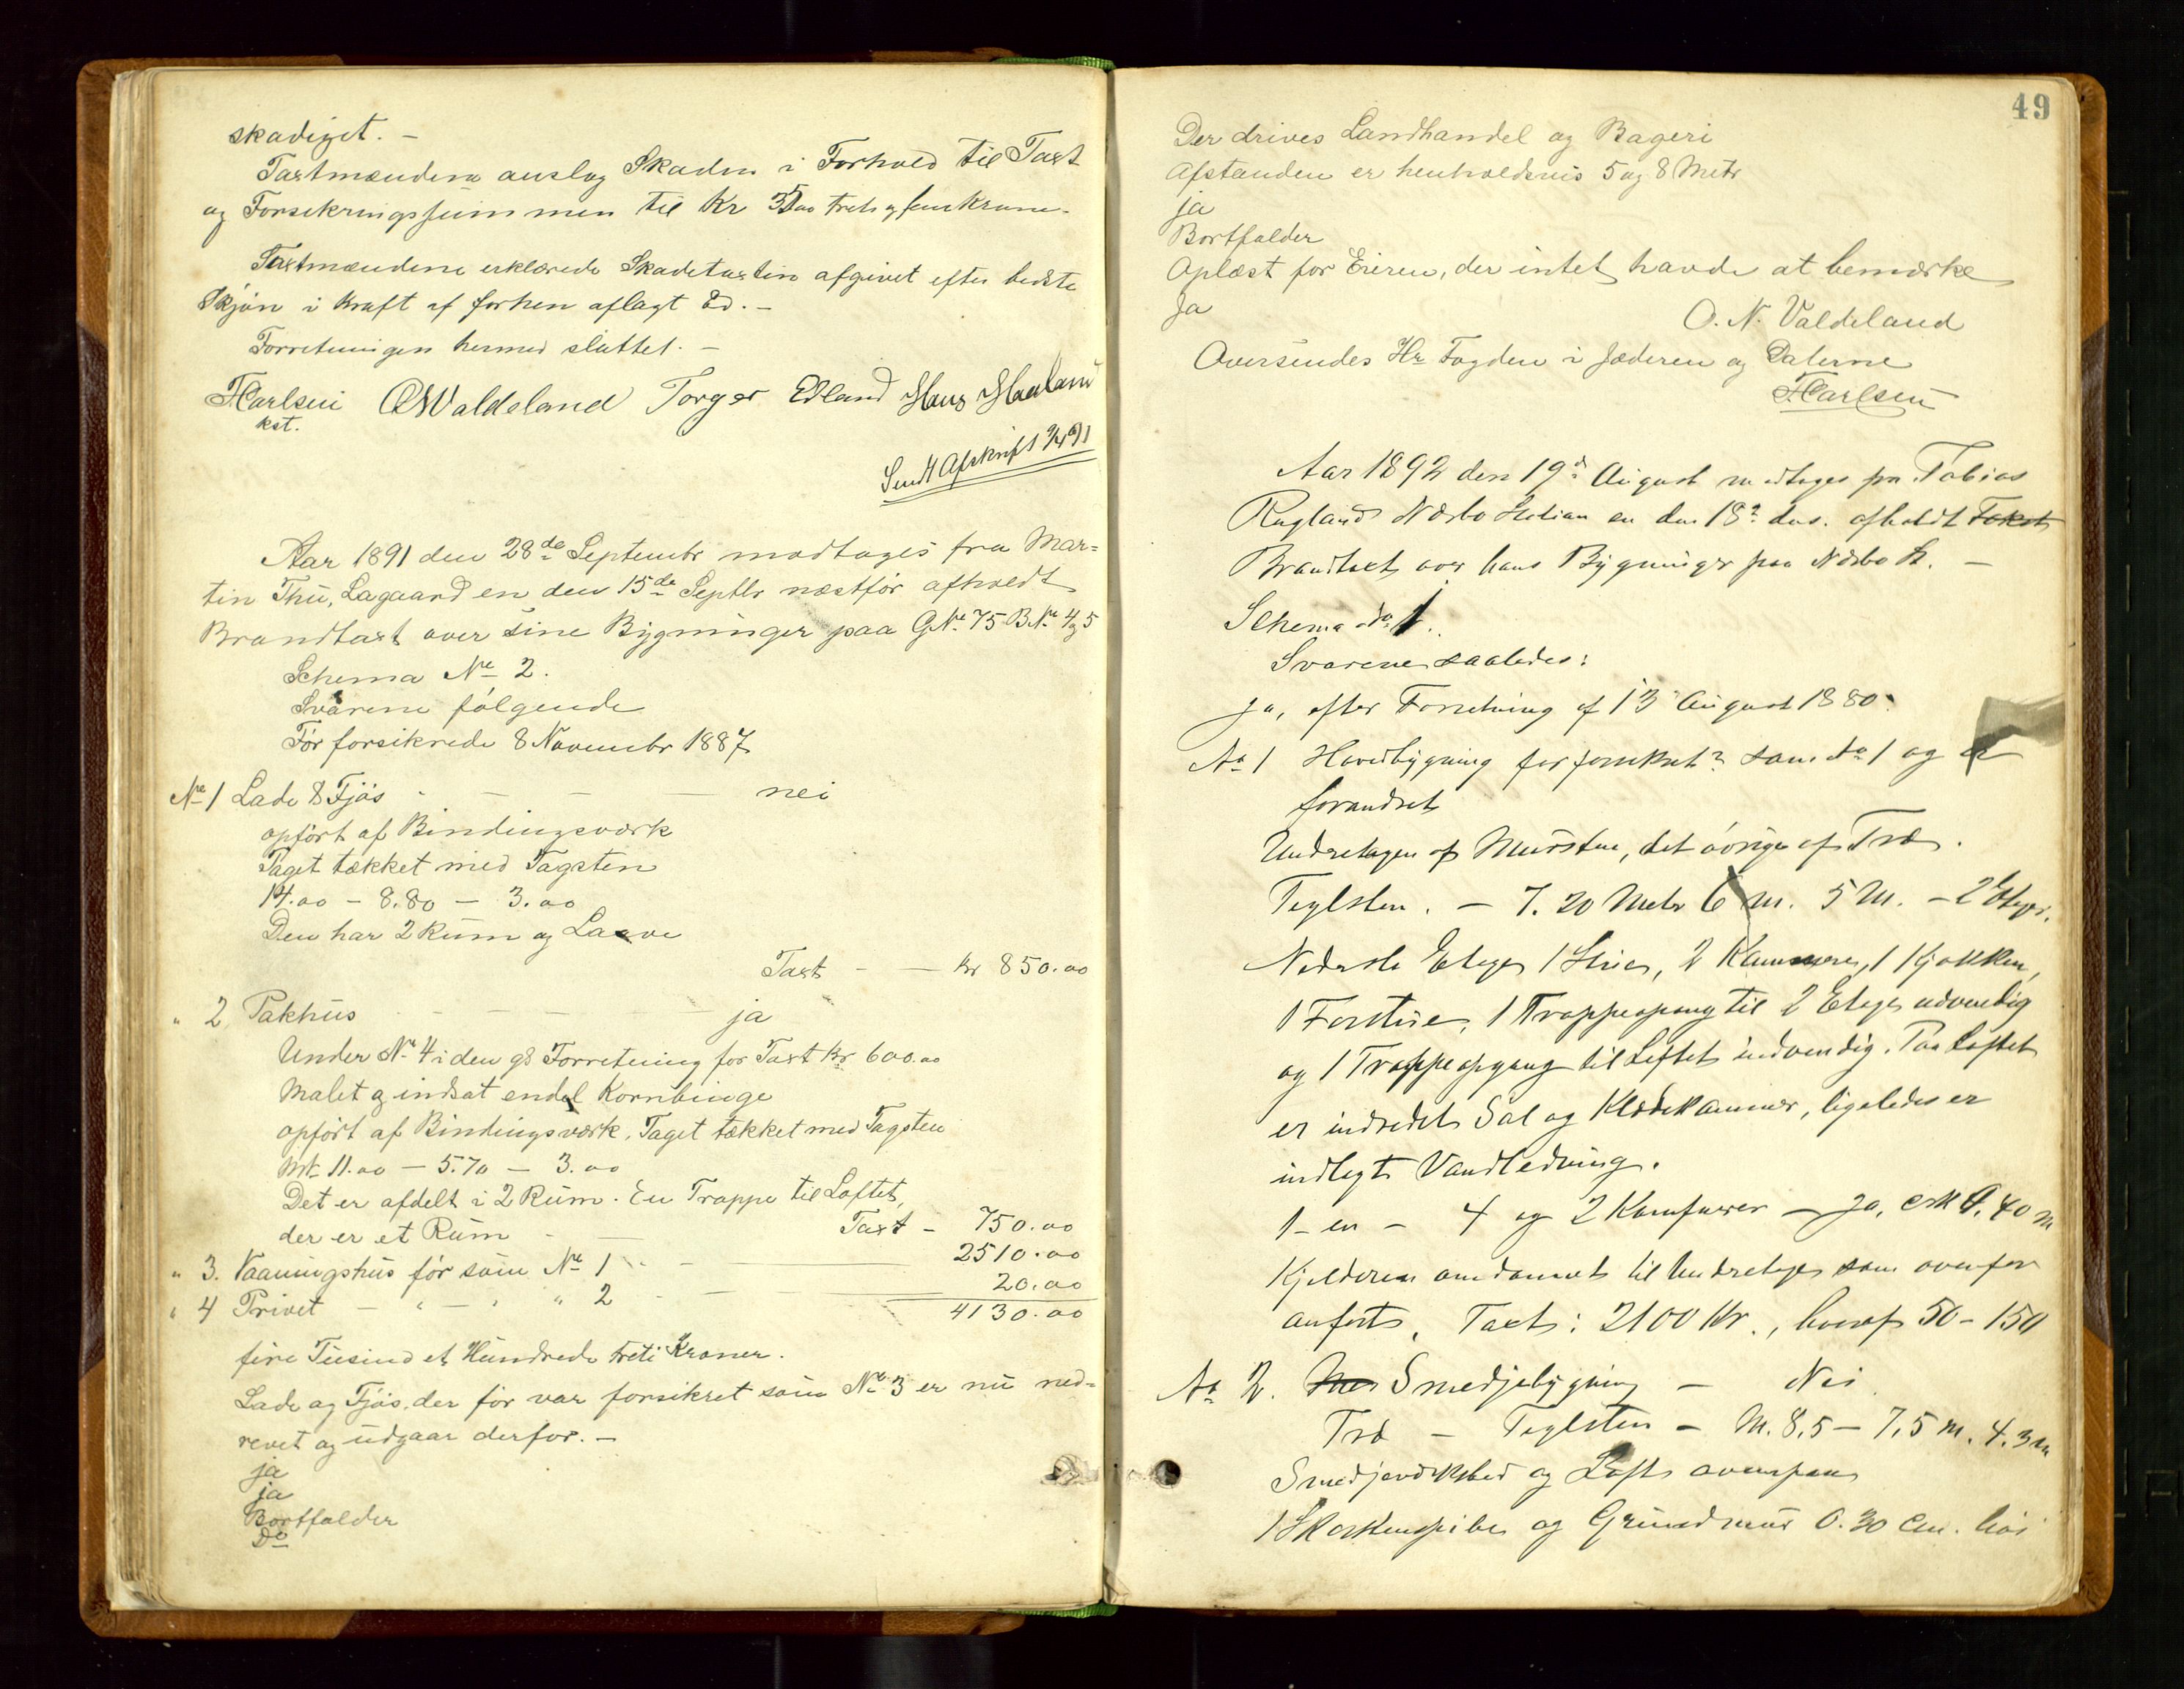 skadiget. –
Taxtmændene anslog Skaden i Forhold til Taxt
og Forsikringssummen til Kr 35,00 treti og fem Kroner.
Taxtmændene erklærede Skadetaxten afgivet efter bedste
Skjøn i Kraft af forhen aflagt Ed. –
Forretningen hermed sluttet. –
F Carlsen O N Valdeland Torger Edland Hans Haaland
kst.
Sendt Afskrift
Aar 1891 den 28de Septembr modtages fra Mar=
tin Thu, Lagaard en den 15de Septbr næstfør afholdt
Brandtaxt over sine Bygninger paa G.No 75 B.No 4 og 5
Schema No 2.
Svarene følgende
Før forsikrede 8 Novembr 1887
No 1 Lade & Fjøs - – – – nei
opført af Bindingsværk
Taget tækket med Tagsten
14.00 – 8.80 – 3.00
Den har 2 Rum og Laave
Taxt – – Kr 850.00
" 2 Pakhus - – – – – ja
Under No 4 i den gl Forretning for Taxt Kr 600.00
Malet og indsat endel Kornbinge
opført af Bindingsværk. Taget tækket med Tagsten
Mt. 11.00 – 5.70 – 3.00
Det er afdelt i 2 Rum. En Trappe til Loftet,
der er et Rum - – Taxt – 750.00
" 3. Vaaningshus før som No 1 - – 2510.00
" 4 Privet – " – " " 2 - – 20.00
4130.00
fire Tusind et Hundrede treti Kroner.
Lade og Fjøs, der før var forsikret som No 3 er nu ned=
revet og udgaar derfor. –
ja
ja
Bortfalder
Do
49
Der drives Landhandel og Bageri
Afstanden er henholdsvis 5 og 8 Metr
ja
Bortfalder
Oplæst for Eieren, der intet havde at bemærke
Ja
O. N. Valdeland
Oversendes Hr Fogden i Jæderen og Dalerne
F Carlsen
Aar 1892 den 19de August modtages fra Tobias
Rugland Nærbo Station en den 18de ds. afholdt Takst
Brandtakst over hans Bygninger paa Nærbo St. –
Schema No 1.
Svarene saaledes:
Ja, efter Forretning af 13 August 1880.
No 1 Hovedbygning før forsikret som No 1 og er
forandret
Underetagen af Mursten, det øvrige af Træ.
Teglsten. – 7.20 Metr 6 m. 5 M. – 2 Etager.
Nederste Etage 1 Stue, 2 Kammere, 1 Kjøkken,
1 Forstue, 1 Trappeopgang til 2 Etage udvendig
og 1 Trappeopgang til Loftet indvendig. Paa Loftet
er indredet Sal og Klædekammer, ligeledes er
indlagt Vandledning.
1 – en – 4 og 2 Komfurer – Ja, 40 m
Kjelderen omdannet til Underetage som ovenfor
anført. Taxt: 2100 Kr., hvoraf 50 – 150
No 2. Smedjebygning – Nei
Træ – Teglsten – M. 8,5 – 7,5 m. 4.3 m
Smedjeværksted og Loft ovenpaa
1 Skorstenspibe og Grundmur 0.30 Cm. høi